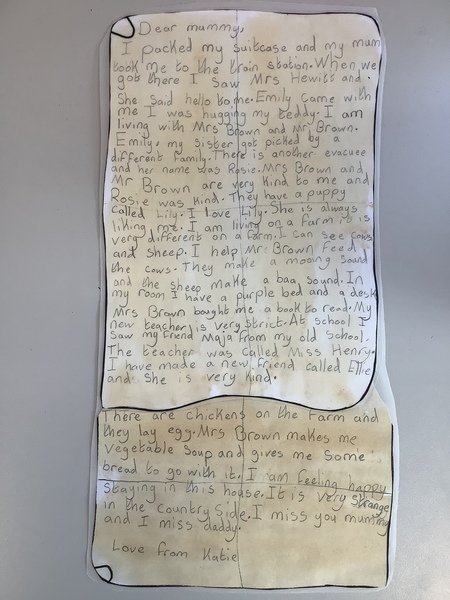 Dear mummy,
I packed my suitcase and my mum
took me to the train station. When we
got there I saw Mrs Hewitt and
She said hello to me. Emily came with
me I was hugging my teddy. I am
living with Mrs Brown and Mr Brown.
Emily, my sister got picked by a
different family. There is another evacuee
and her name was Rosie. Mrs Brown and
Mr Brown are very kind to me and
Rosie was kind. They have a puppy
called Lily. I love Lily. She is always
liking me. I am living on a farm it is
very different on a farm. I can see cows
and sheep. I help Mr Brown feed
the cows. They make a mooing sound
and the sheep make a baa sound. In
my room I have a purple bed and a desk
Mrs Brown bought me a book to read. My
new teacher is very strict. At school I
saw my friend Maja from my old school.
The teacher was called Miss Henry.
I have made a new friend called Ellie
and She is very kind.
There are chickens on the farm and
they lay egg. Mrs Brown makes me
vegetable soup and gives me some
bread to go with it. I am feeling happy
staying in this house. It is very strange
in the country side. I miss you mummy
and I miss daddy.
Love from Katie